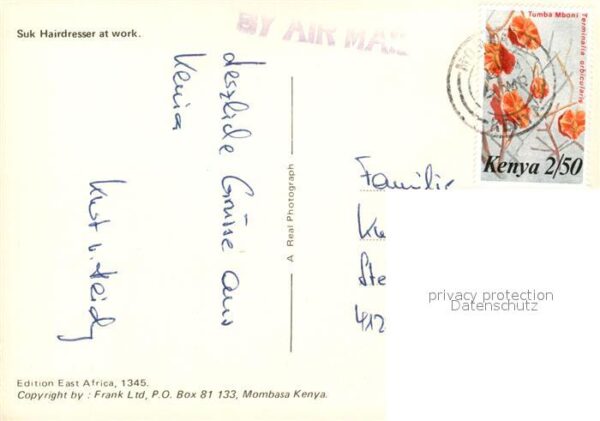 Suk Hairdresser at work.
BY AIR MAIL
Tumba Mboni
Terminalia orbicularis
Kenya 2/50
KENYA
Herzliche Grüsse aus
Kenia
Kurt u. Heidy
A Real Photograph
Familie
Ku
Ste
412
privacy protection
Datenschutz
Edition East Africa, 1345.
Copyright by : Frank Ltd, P.O. Box 81 133, Mombasa Kenya.